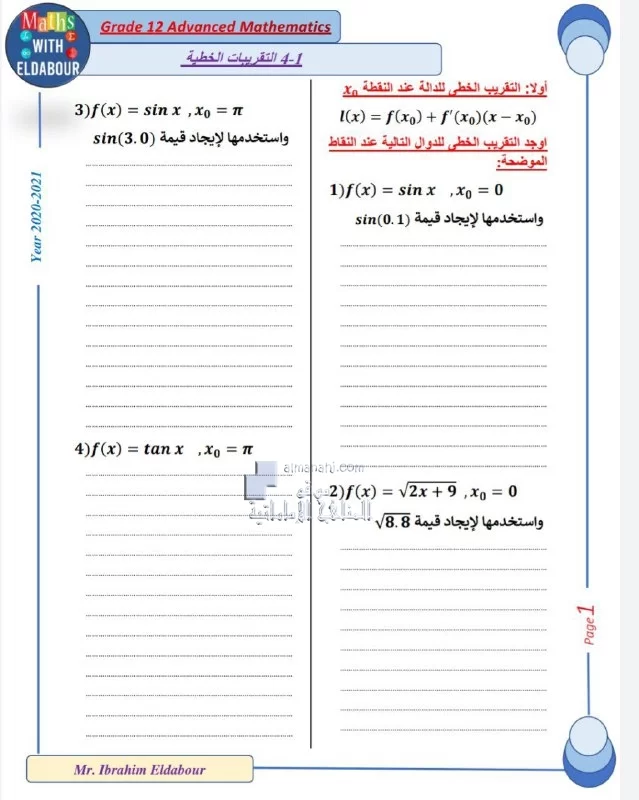 Maths
WITH
ELDABOUR
Grade 12 Advanced Mathematics
4-1 التقريبات الخطية
Year 2020-2021
أولا: التقريب الخطي للدالة عند النقطة x₀
l(x) = f(x₀) + f′(x₀)(x − x₀)
اوجد التقريب الخطي للدوال التالية عند النقاط
الموضحة:
1)f(x) = sin x , x₀ = 0
واستخدمها لإيجاد قيمة sin(0.1)
2)f(x) = √(2x + 9) , x₀ = 0
واستخدمها لإيجاد قيمة √8.8
3)f(x) = sin x , x₀ = π
واستخدمها لإيجاد قيمة sin(3.0)
4)f(x) = tan x , x₀ = π
almanahj.com
موقع
المناهج الإماراتية
Page 1
Mr. Ibrahim Eldabour